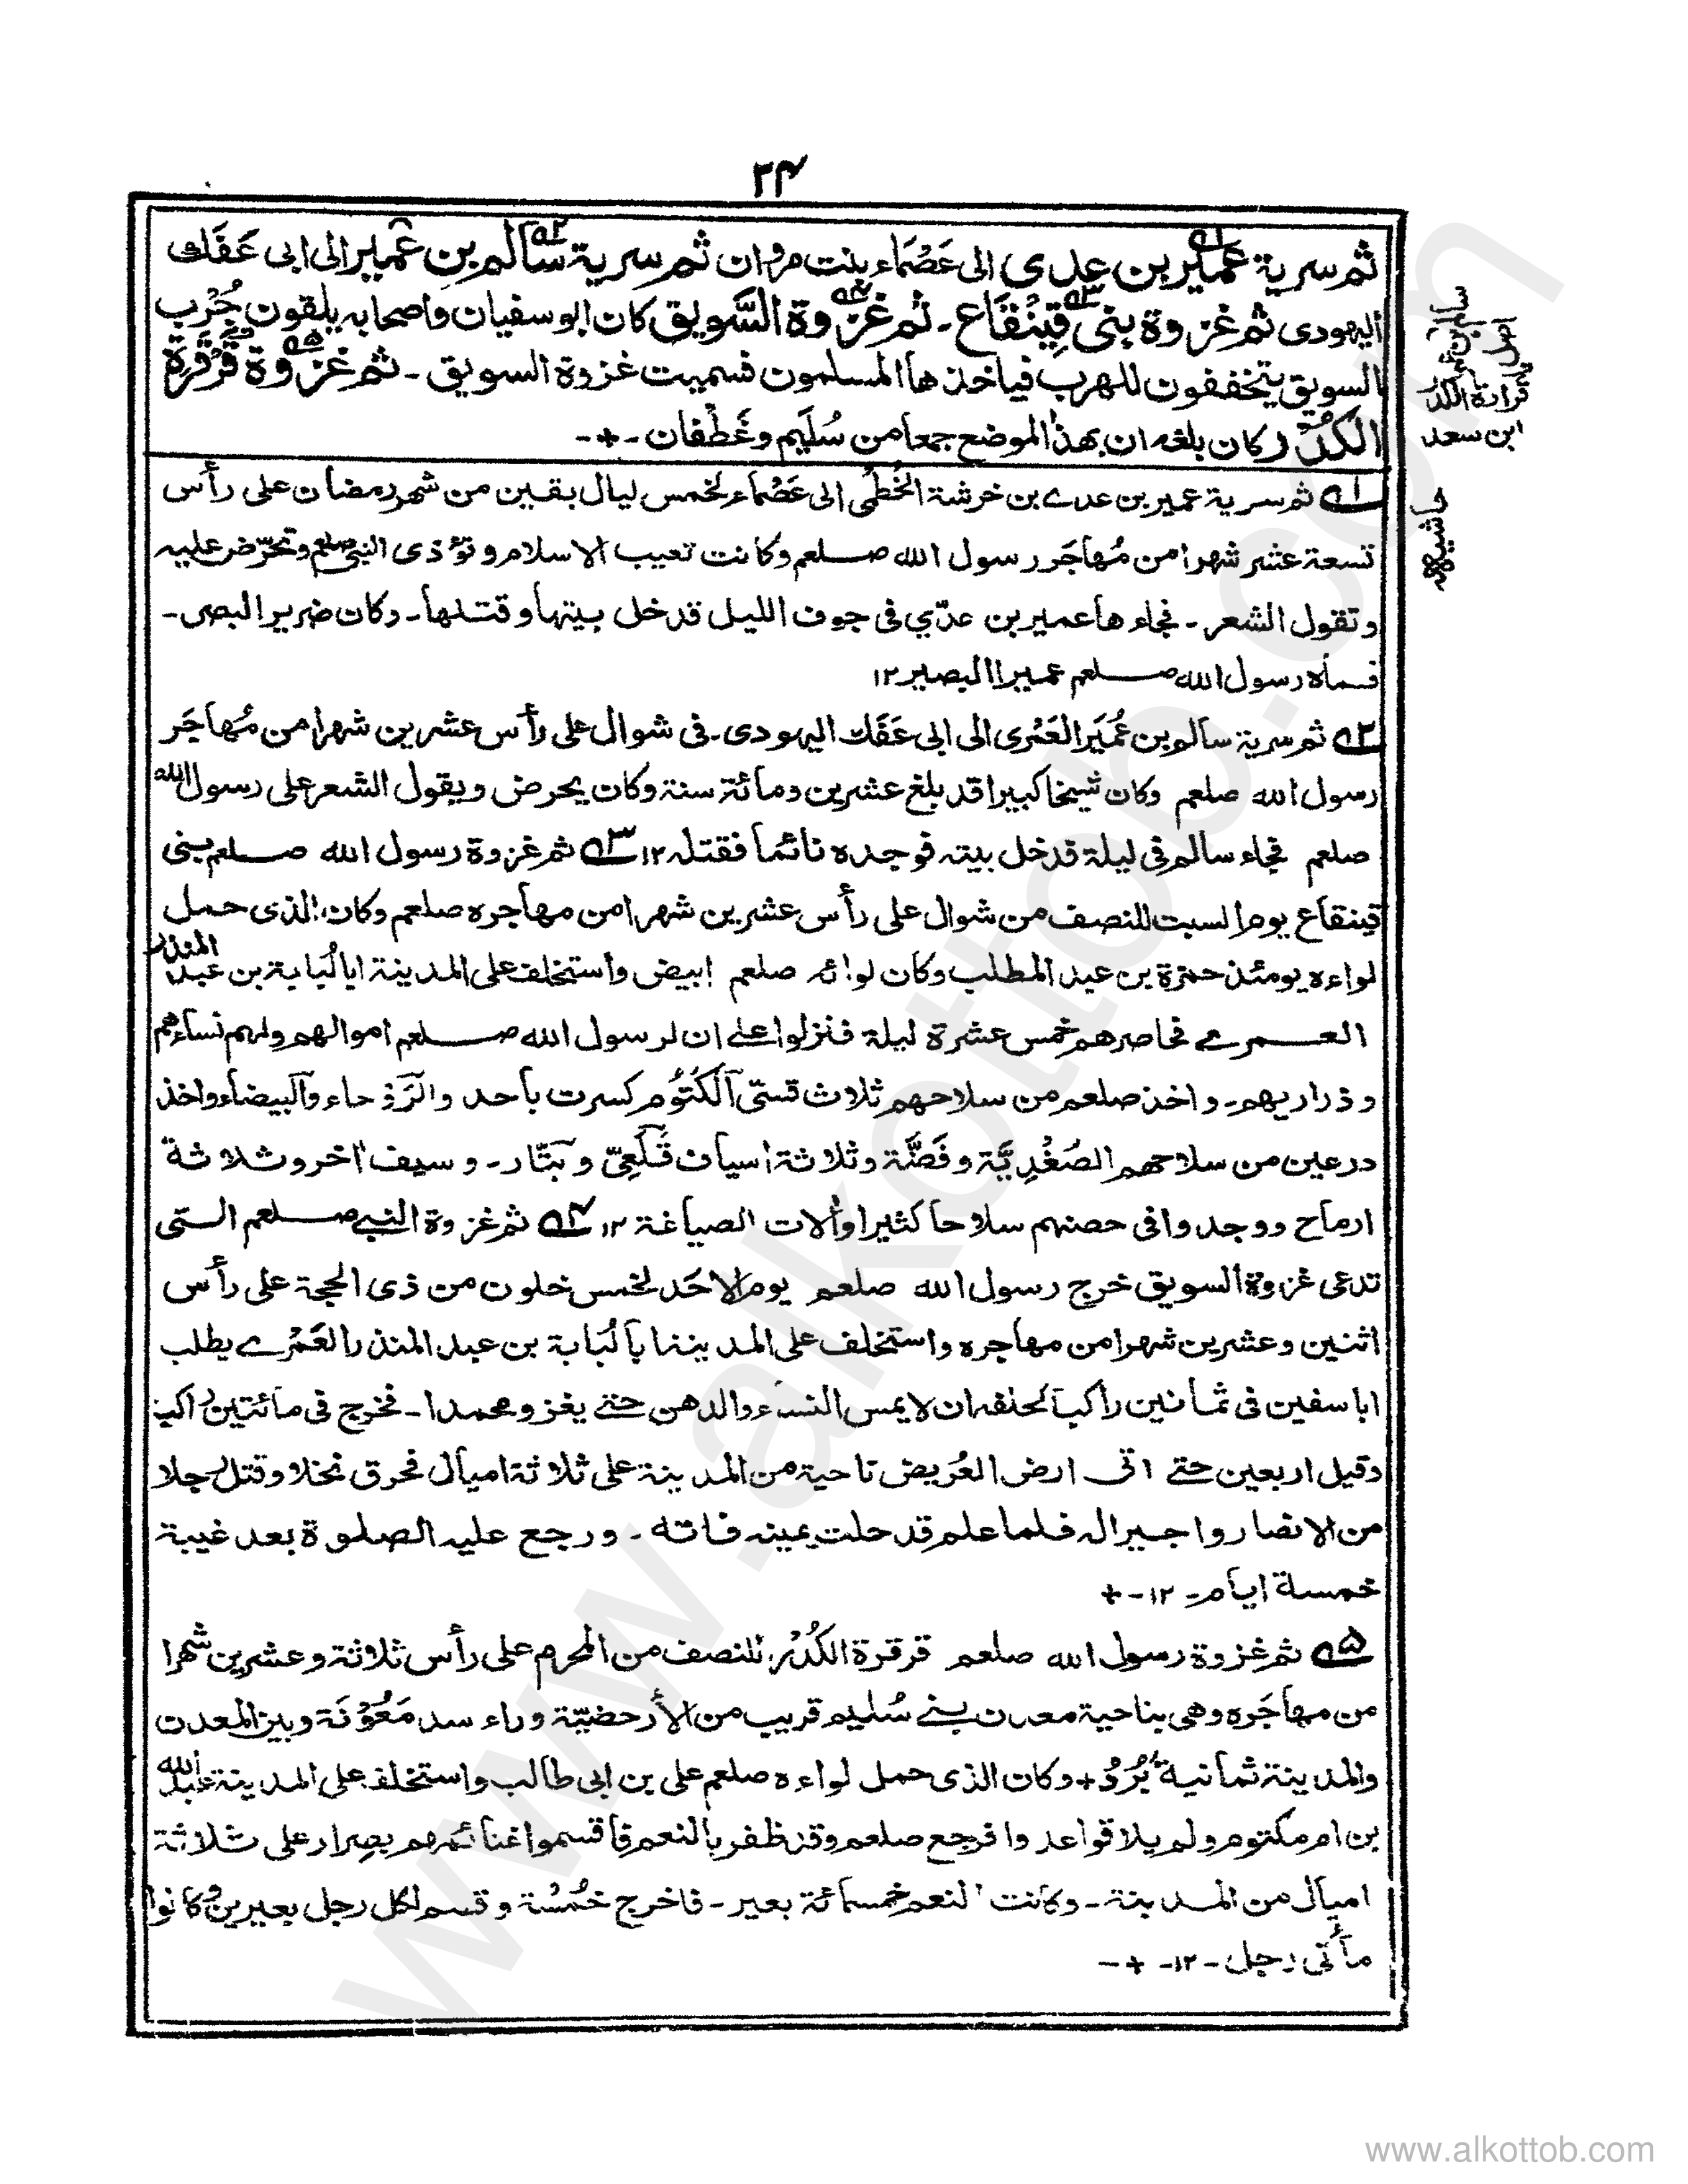 ۲۴
ثم سرية عمير بن عدي الى عَصْمَاء بنت مروان ثم سرية سالم بن عمير الى ابى عَفَك
اليهودى ثم غزوة بنى قينُقاع ـ ثم غزوة السَّويق كان ابو سفيان واصحابه يلقون جُرُب
السويق يتخففون للهرب فياخذها المسلمون فسميت غزوة السويق ـ ثم غزوة قَرْقَرَة
الكُدْر وكان بلغه ان بهذا الموضع جمعا من سُلَيم وغَطَفان ـ+ـ
سالم بن عمير
اصل
قرارة الكدر
ابن سعد
حاشيه
۱ ثم سرية عمير بن عدے بن خرشة الخَطْمى الى عَصْماء لخمس ليال بقين من شهر رمضان على رأس
تسعة عشر شهرا من مُهاجَر رسول الله صلعم وكانت تعيب الاسلام وتؤذى النبى صلعم وتحرّض عليه
وتقول الشعر ـ فجاءها عمير بن عدّي فى جوف الليل فدخل بيتها وقتلها ـ وكان ضرير البصر ـ
فسماه رسول الله صلعم عميرا البصير ۱۲
۲ ثم سرية سالم بن عُمَير العَمْرى الى ابى عَفَك اليهودى ـ فى شوال على رأس عشرين شهرا من مُهاجَر
رسول الله صلعم وكان شيخا كبيرا قد بلغ عشرين ومائة سنة وكان يحرض ويقول الشعر على رسول الله
صلعم فجاء سالم فى ليلة فدخل بيته فوجده نائما فقتله ۱۲ ۳ ثم غزوة رسول الله صلعم بنى
قينقاع يوم السبت للنصف من شوال على رأس عشرين شهرا من مهاجره صلعم وكان الذى حمل
لواءه يومئذ حمزة بن عبد المطلب وكان لوائه صلعم ابيض واستخلف على المدينة ابا لُبابة بن عبد المنذر
العمرے فحاصرهم خمس عشرة ليلة فنزلوا علے ان لرسول الله صلعم اموالهم ولهم نساءهم
وذراريهم ـ واخذ صلعم من سلاحهم ثلاث قسّى اَلْكَتُوم كسرت باحد والرَّوْحاء والبيضاء واخذ
درعين من سلاحهم الصُغْدِيَّة وفَضَّة وثلاثة اسياف قَلَعِىّ وبَتّار ـ وسيف اخر وثلاثة
ارماح ووجدوا فى حصنهم سلاحا كثيرا واٰلات الصياغة ۱۲ ۴ ثم غزوة النبے صلعم التى
تدعى غزوة السويق خرج رسول الله صلعم يوم الاحد لخمس خلون من ذى الحجة على رأس
اثنين وعشرين شهرا من مهاجره واستخلف على المدينة ابا لُبابة بن عبد المنذر العَمْرے يطلب
ابا سفين فى ثمانين راكبا لحلفه ان لا يمس النساء والدهن حتے يغزو محمدا ـ فخرج فى مائتين راكب
وقيل اربعين حتے اتى ارض العُرَيض ناحية من المدينة على ثلاثة اميال فحرق نخلا وقتل رجلا
من الانصار واجيرا له فلما علم قد حلت يمينه فاته ـ ورجع عليه الصلوة بعد غيبة
خمسة ايام ـ ۱۲ ـ +
۵ ثم غزوة رسول الله صلعم قرقرة الكُدْر للنصف من المحرم على رأس ثلاثة وعشرين شهرا
من مهاجَره وهى بناحية معدن بنے سُليم قريب من الأرحضيّة وراء سد مَعُوْنَة وبين المعدن
والمدينة ثمانية بُرُد + وكان الذى حمل لواءه صلعم على بن ابى طالب واستخلف على المدينة عبد الله
بن ام مكتوم ولم يلاقوا عدوا فرجع صلعم وقد ظفر بالنعم فاقسموا غنائمهم بصِرار على ثلاثة
اميال من المدينة ـ وكانت النعم خمسمائة بعير ـ فاخرج خُمُسَة وقسم لكل رجل بعيرين وكانوا
مأتى رجل ـ ۱۲ ـ + ـ
www.alkottob.com
www.alkottob.com